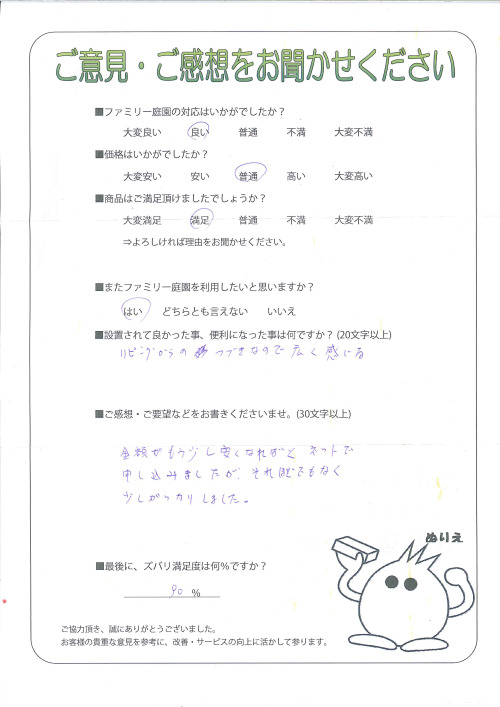 ご意見・ご感想をお聞かせください
■ファミリー庭園の対応はいかがでしたか？
大変良い 良い 普通 不満 大変不満
■価格はいかがでしたか？
大変安い 安い 普通 高い 大変高い
■商品はご満足頂けましたでしょうか？
大変満足 満足 普通 不満 大変不満
⇒よろしければ理由をお聞かせください。
■またファミリー庭園を利用したいと思いますか？
はい どちらとも言えない いいえ
■設置されて良かった事、便利になった事は何ですか？(20文字以上)
リビングからの つづきなので広く感じる
■ご感想・ご要望などをお書きくださいませ。(30文字以上)
金額がもう少し安くなればと ネットで
申し込みましたが、それほどでもなく
少しがっカリしました。
ぬりえ
■最後に、ズバリ満足度は何％ですか？
90 %
ご協力頂き、誠にありがとうございました。
お客様の貴重な意見を参考に、改善・サービスの向上に活かして参ります。